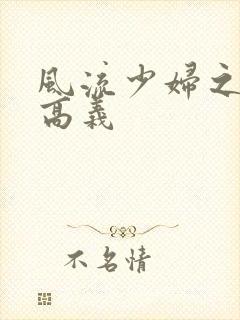 风流少婦之
高義
不名情